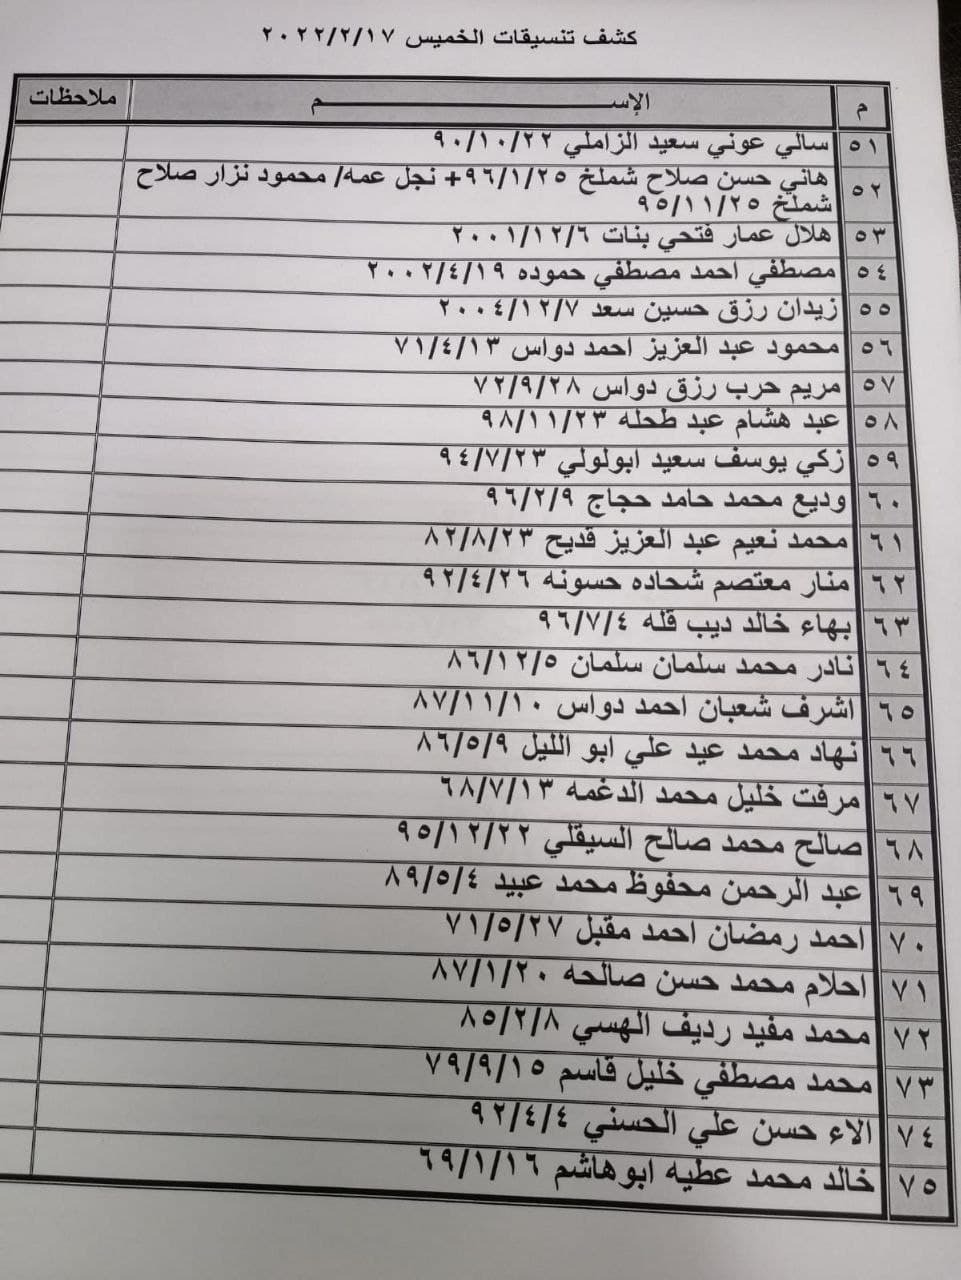 كشف تنسيقات الخميس ٢٠٢٢/٢/١٧
م الإســـــــــــــــــــم ملاحظات
٥١ سالي عوني سعيد الزاملي ٩٠/١٠/٢٢
٥٢ هاني حسن صلاح شملخ ٩٦/١/٢٥+ نجل عمه/ محمود نزار صلاح
شملخ ٩٥/١١/٢٥
٥٣ هلال عمار فتحي بنات ٢٠٠١/١٢/٦
٥٤ مصطفي احمد مصطفي حموده ٢٠٠٢/٤/١٩
٥٥ زيدان رزق حسين سعد ٢٠٠٤/١٢/٧
٥٦ محمود عبد العزيز احمد دواس ٧١/٤/١٣
٥٧ مريم حرب رزق دواس ٧٢/٩/٢٨
٥٨ عبد هشام عبد طحله ٩٨/١١/٢٣
٥٩ زكي يوسف سعيد ابولولي ٩٤/٧/٢٣
٦٠ وديع محمد حامد حجاج ٩٦/٢/٩
٦١ محمد نعيم عبد العزيز قديح ٨٢/٨/٢٣
٦٢ منار معتصم شحاده حسونه ٩٢/٤/٢٦
٦٣ بهاء خالد ديب قله ٩٦/٧/٤
٦٤ نادر محمد سلمان سلمان ٨٦/١٢/٥
٦٥ اشرف شعبان احمد دواس ٨٧/١١/١٠
٦٦ نهاد محمد عيد علي ابو الليل ٨٦/٥/٩
٦٧ مرفت خليل محمد الدغمه ٦٨/٧/١٣
٦٨ صالح محمد صالح السيقلي ٩٥/١٢/٢٢
٦٩ عبد الرحمن محفوظ محمد عبيد ٨٩/٥/٤
٧٠ احمد رمضان احمد مقبل ٧١/٥/٢٧
٧١ احلام محمد حسن صالحه ٨٧/١/٢٠
٧٢ محمد مفيد رديف الهسي ٨٥/٢/٨
٧٣ محمد مصطفي خليل قاسم ٧٩/٩/١٥
٧٤ الاء حسن علي الحسني ٩٢/٤/٤
٧٥ خالد محمد عطيه ابوهاشم ٦٩/١/١٦